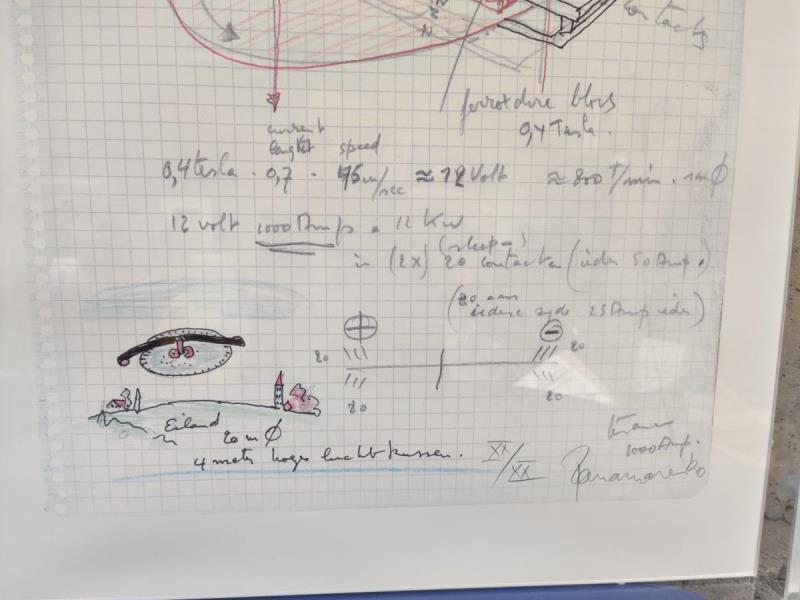 contacts
N
N
N
ferroxdure blocs
0,4 Tesla.
current
lenght speed
0,4 tesla . 0,7 . 45 m/sec ≈ 12 Volt ≈ 800 T/min . 1m Ø
12 volt 1000 Amps = 12 KW
(sleep-)
in (2x) 20 contacten (ieder 50 Amp.)
(20 aan
iedere zyde 25 Amp ieder)
+ -
20 20
20 20
Eiland
20 m Ø
4 meter hoge luchtkussen.
1000 Amp.
XX/XX Panamarenko